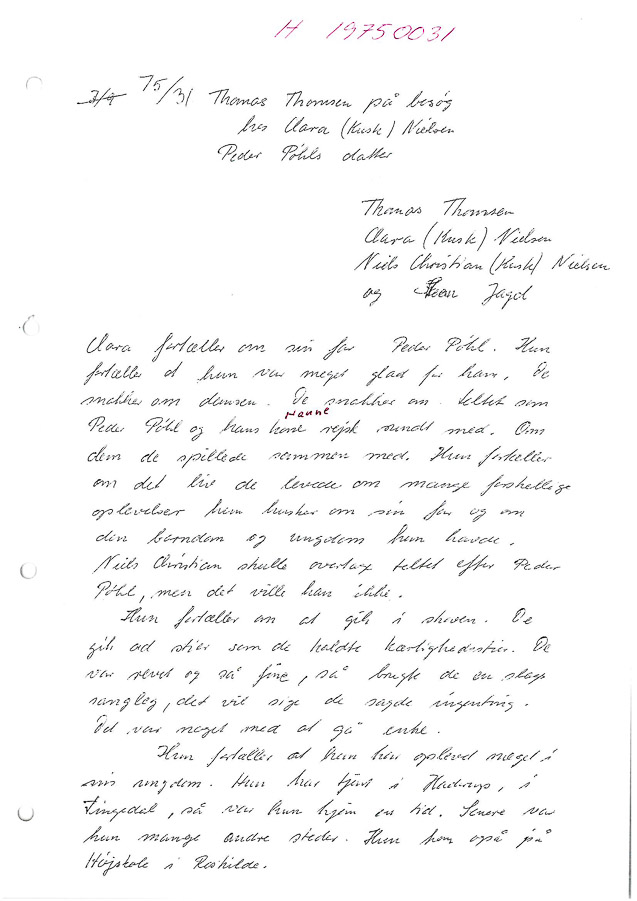 H 19750031
75/31 Thomas Thomsen på besøg
hos Clara (Kusk) Nielsen
Peder Pöhls datter
Thomas Thomsen
Clara (Kusk) Nielsen
Niels Christian (Kusk) Nielsen
og Jagd
Clara fortæller om sin far Peder Pöhl. Hun
fortæller at hun var meget glad for ham. De
snakker om dansen. De snakker om teltet som
Peder Pöhl og hans kone Nanne rejste rundt med. Om
dem de spillede sammen med. Hun fortæller
om det liv de levede om mange forskellige
oplevelser hun husker om sin far og om
den barndom og ungdom hun havde.
Niels Christian skulle overtage teltet efter Peder
Pöhl, men det ville han ikke.
Hun fortæller om at gik i skoven. De
gik ad stier som de kaldte Kærlighedsstier. De
var revet og så fine, så brugte de en slags
sangleg, det vil sige de sagde ingenting.
Det var noget med at gå enke.
Hun fortæller at hun har oplevet meget i
sin ungdom. Hun har tjent i Hadrup, i
Tingedal, så var hun hjem en tid. Senere var
hun mange andre steder. Hun kom også på
Højskole i Roskilde.